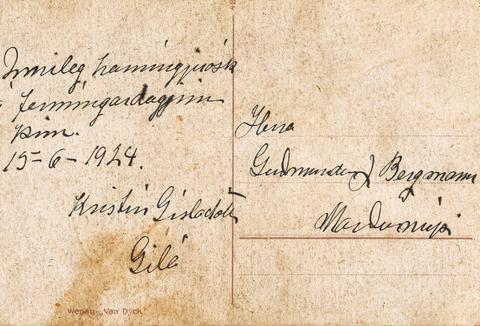 Innileg hamingjuósk
fermingardaginn
þinn.
15-6-1924.
Kristín Gísladótt
Gilá
Herra
Gudmundur Bergmann
Wenau-Van Dyck